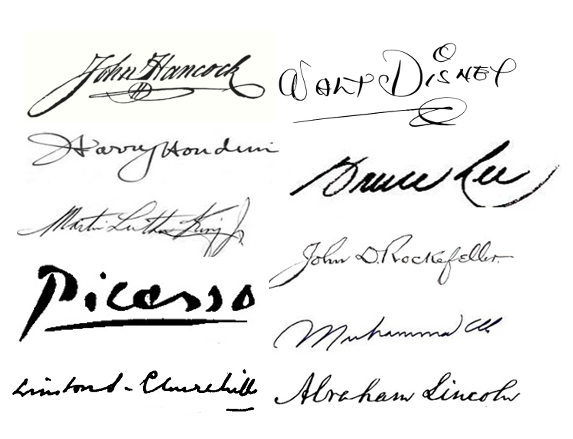 John Hancock
Walt Disney
Harry Houdini
Bruce Lee
Martin Luther King Jr
John D. Rockefeller
Picasso
Muhammad Ali
Winston S. Churchill
Abraham Lincoln